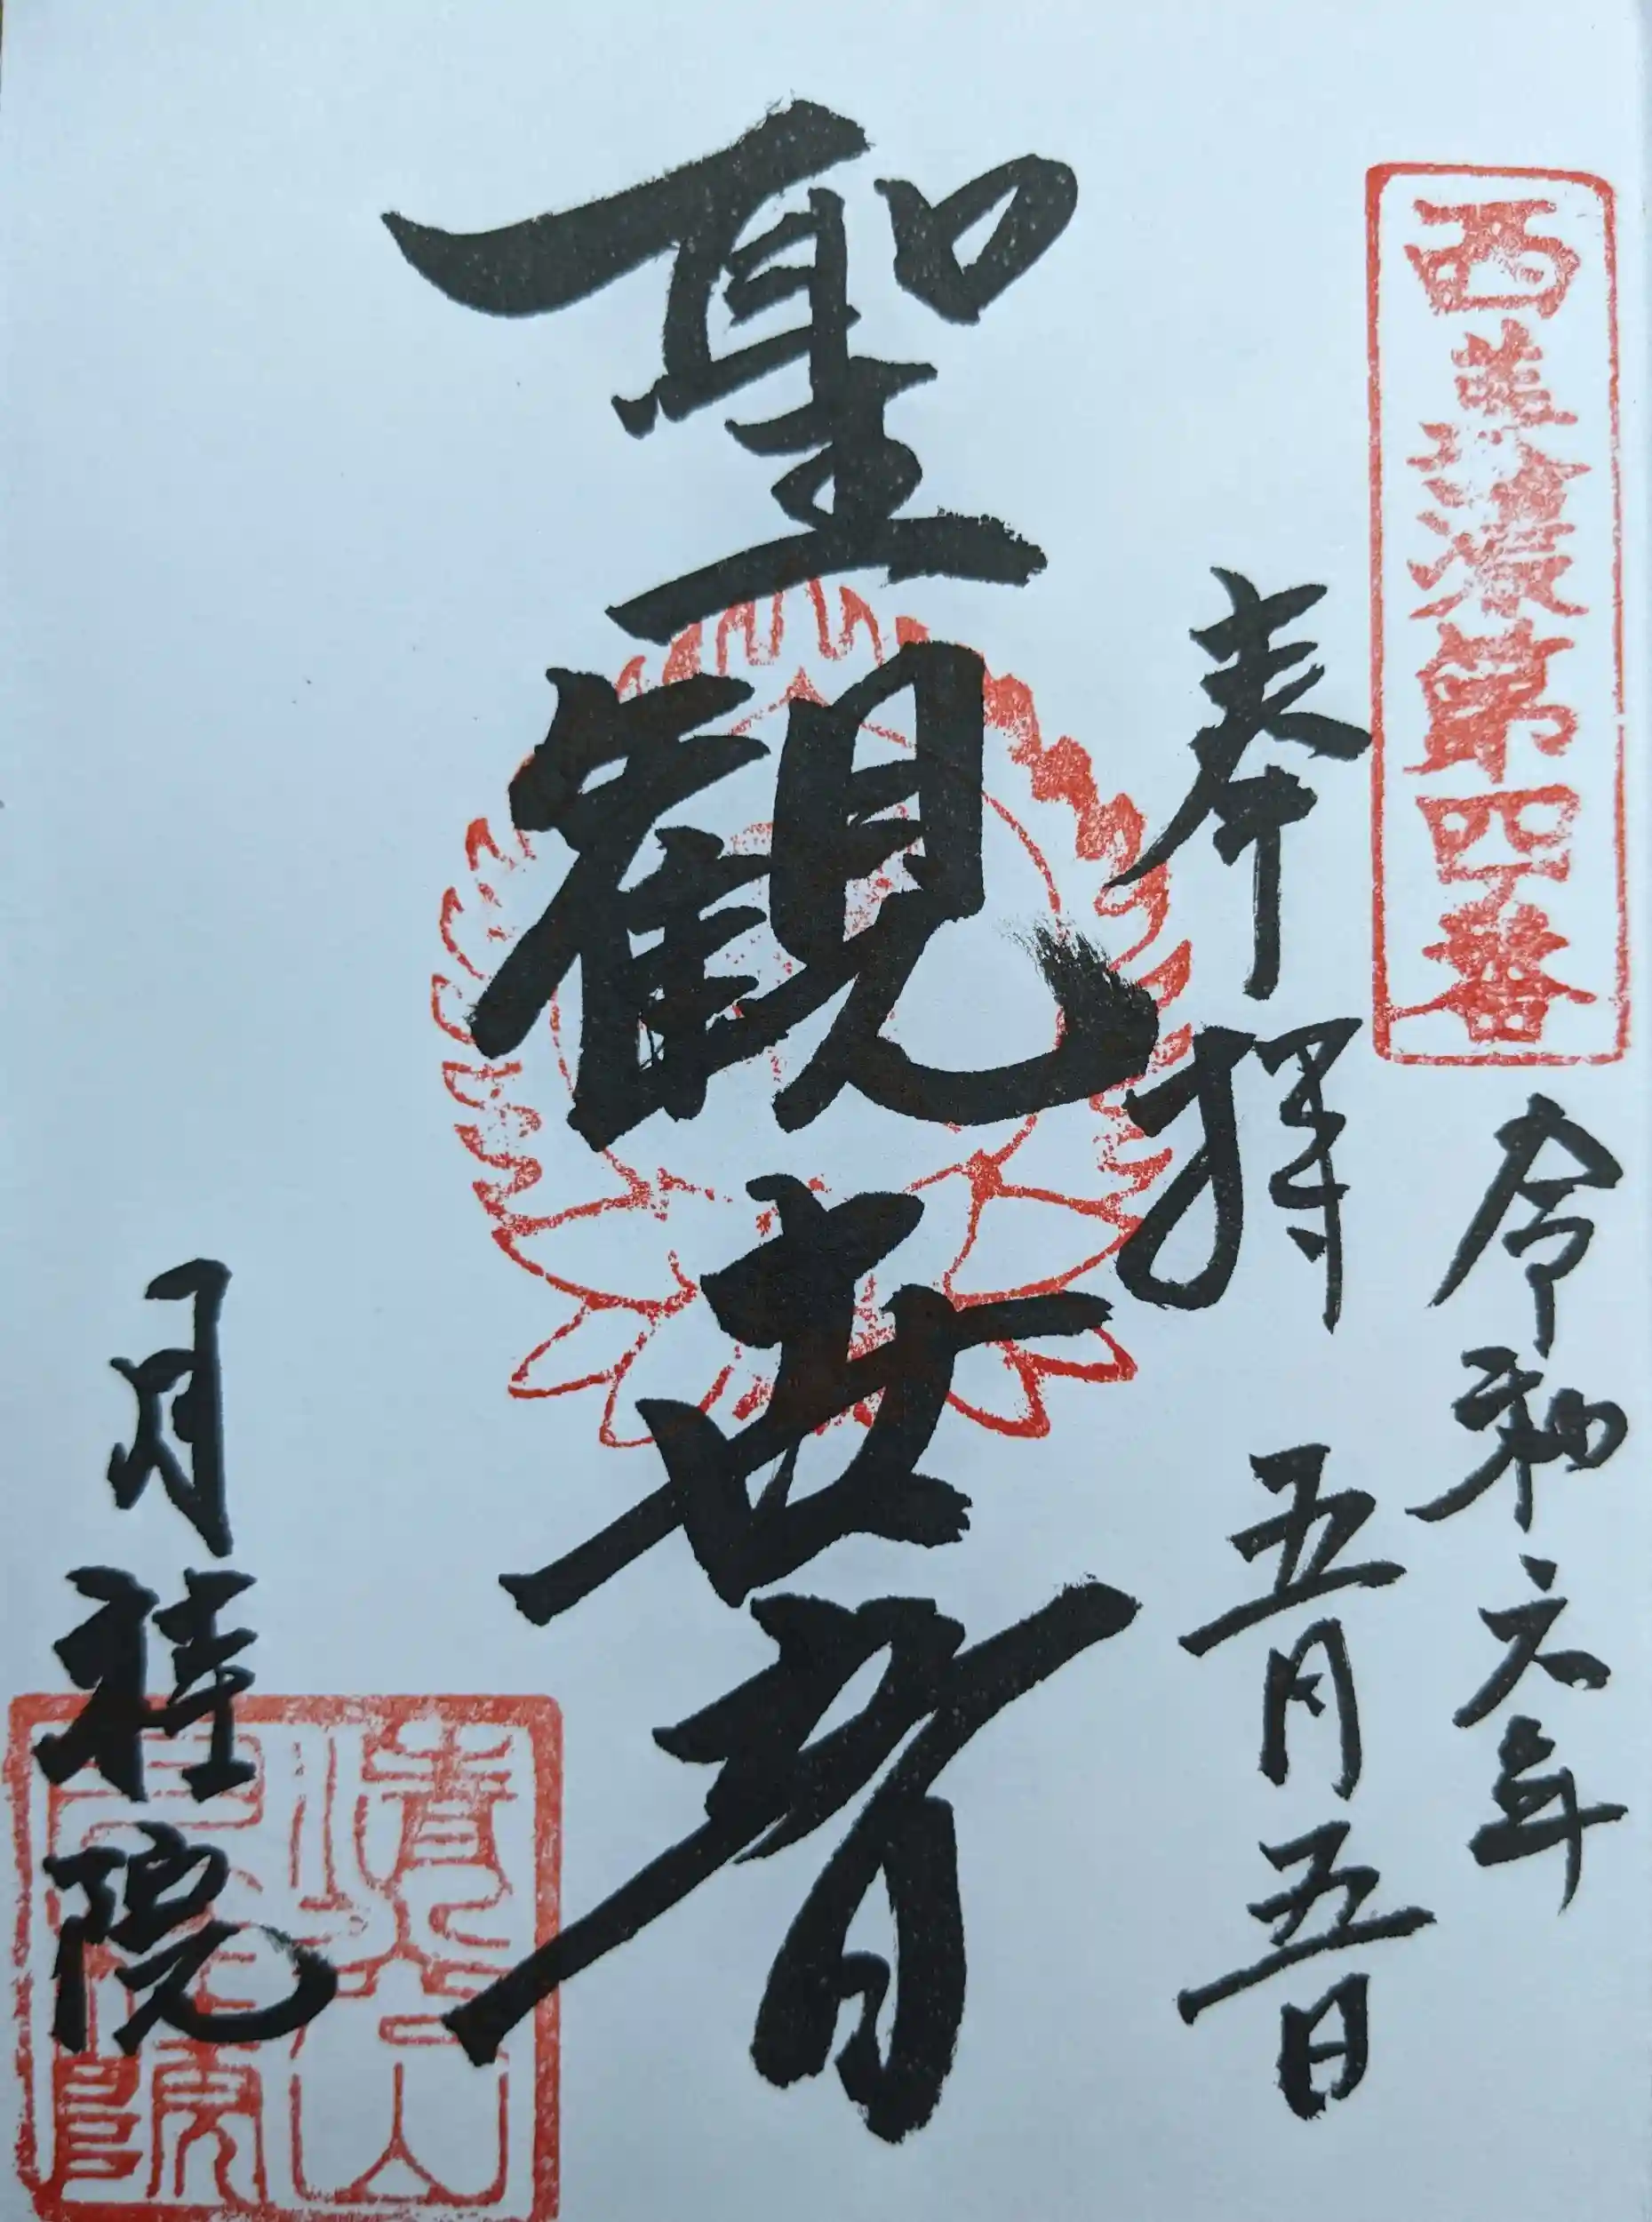 西美濃第四番
令和六年
奉拝 五月五日
聖観世音
月桂院